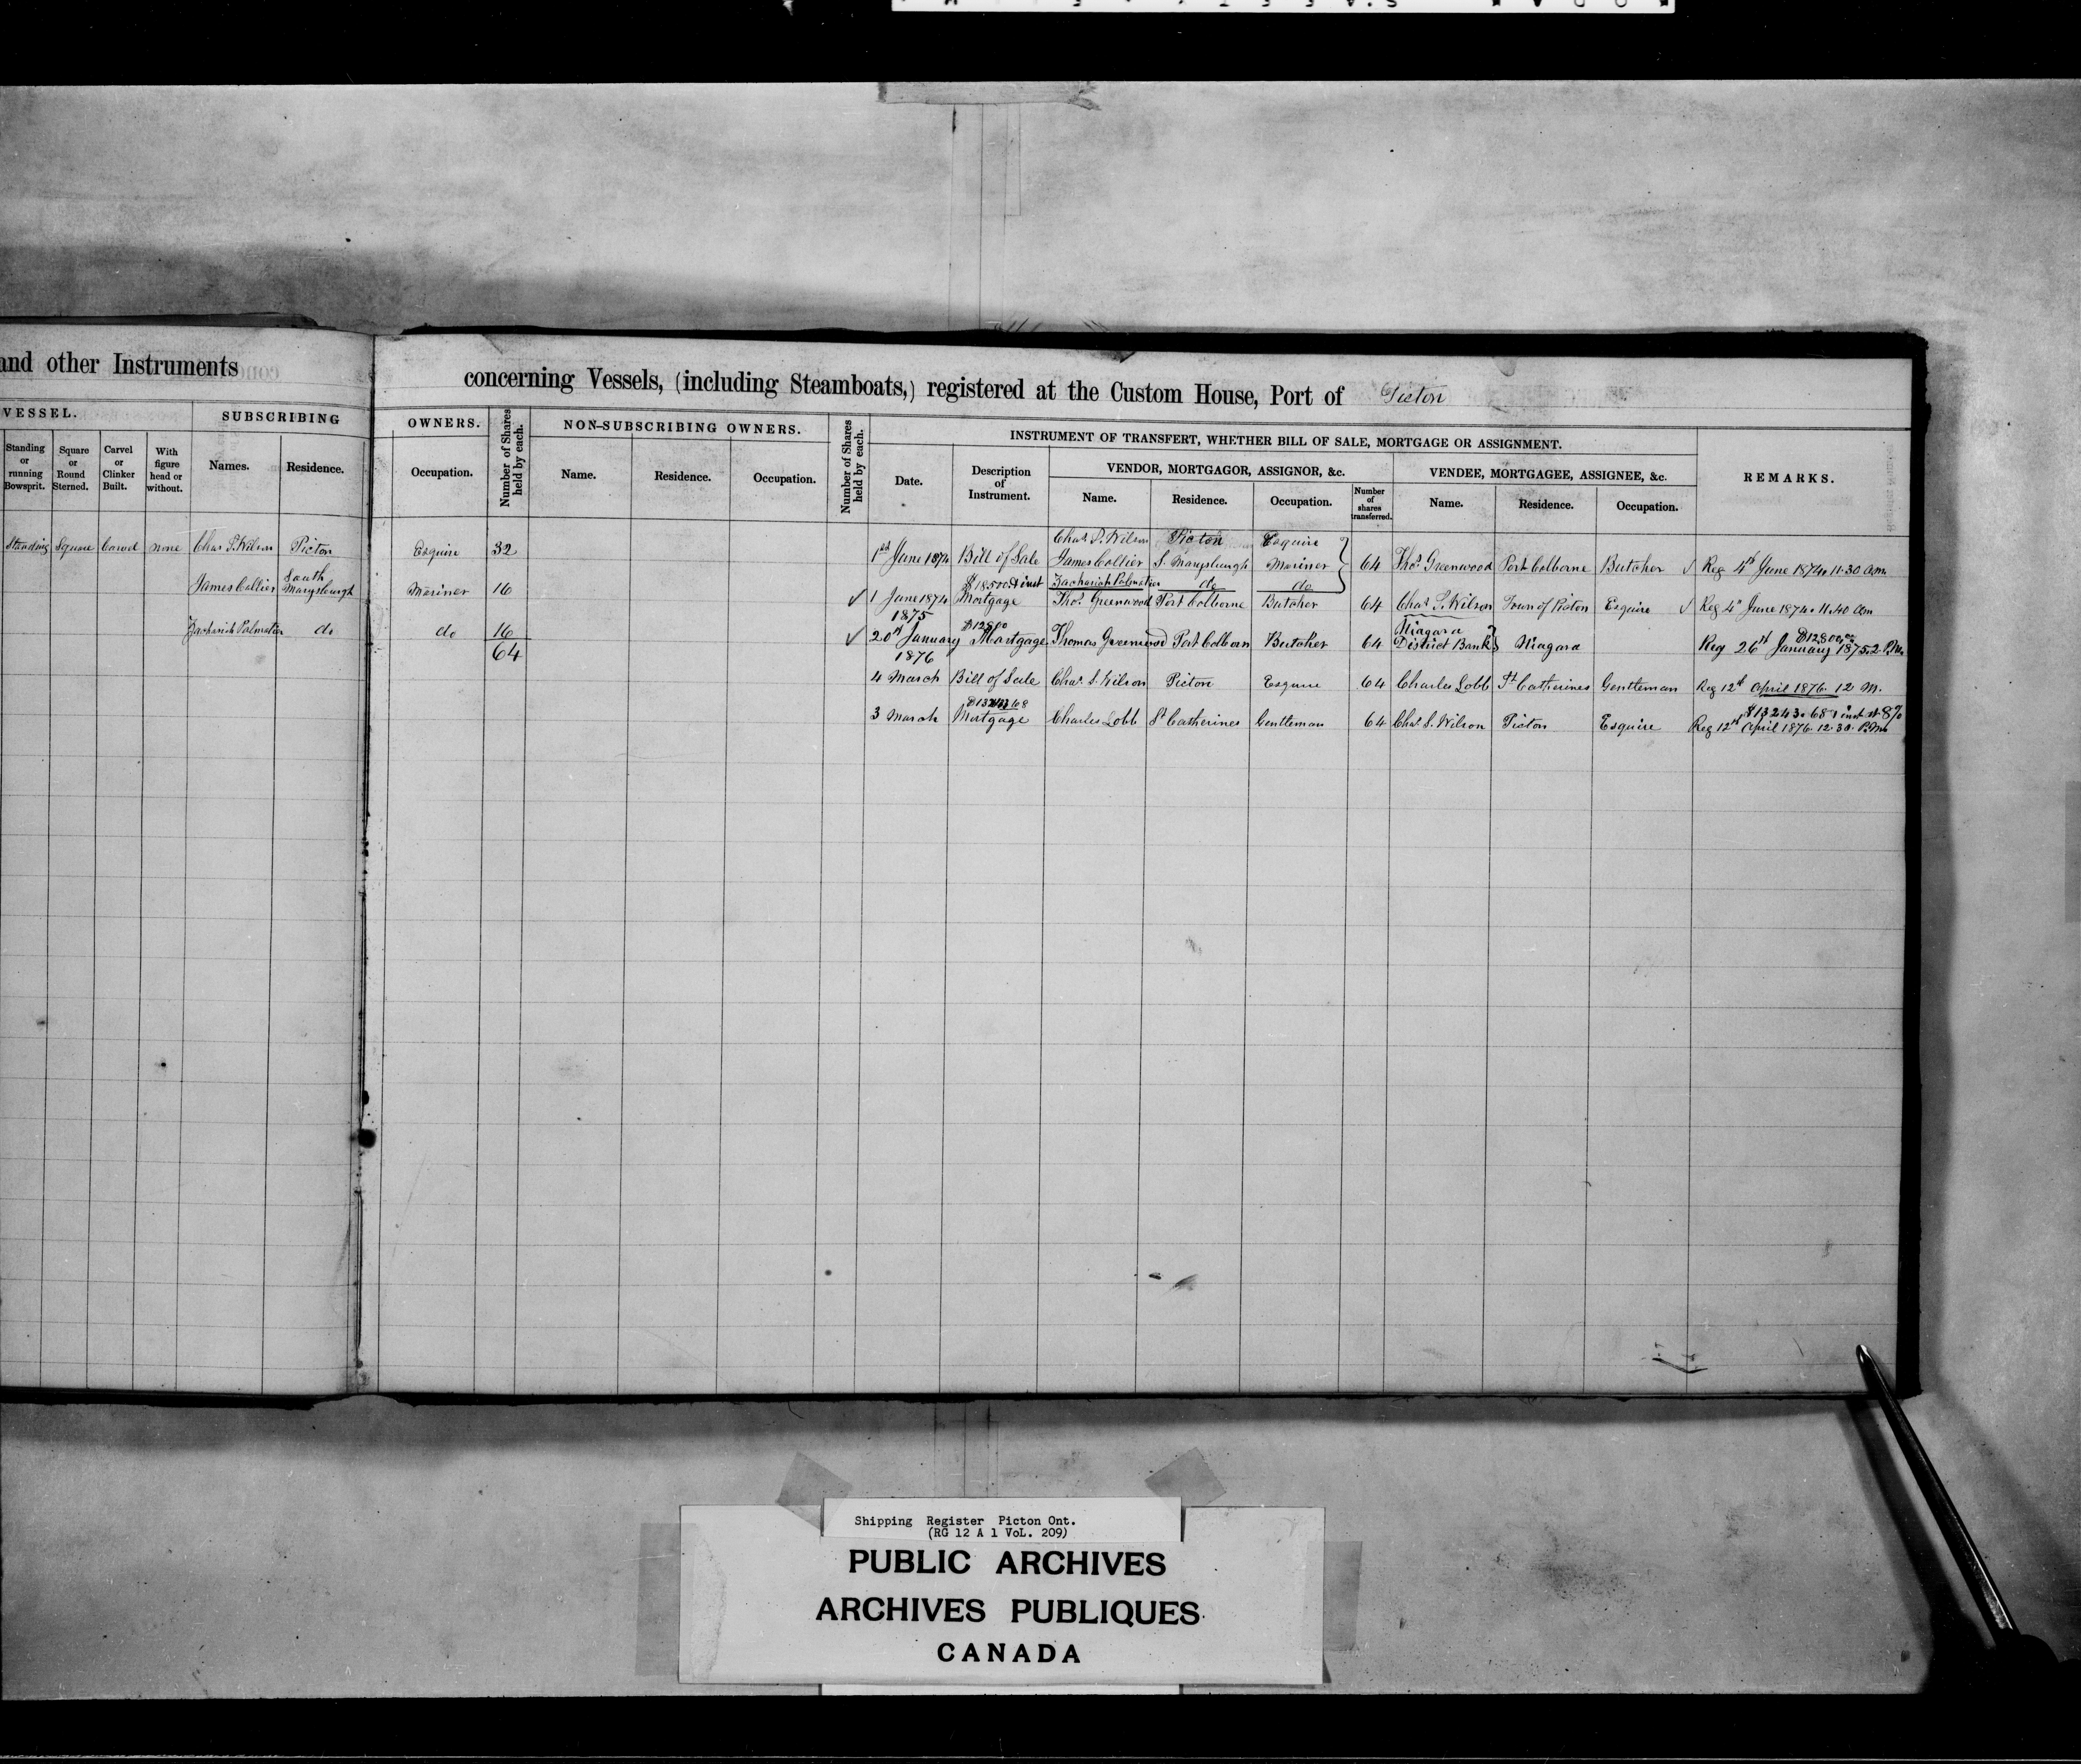 and other Instruments
concerning Vessels, (including Steamboats,) registered at the Custom House, Port of Picton
VESSEL.
SUBSCRIBING
OWNERS.
Number of Shares held by each.
NON-SUBSCRIBING OWNERS.
Number of Shares held by each.
INSTRUMENT OF TRANSFERT, WHETHER BILL OF SALE, MORTGAGE OR ASSIGNMENT.
REMARKS.
Standing or running Bowsprit.
Square or Round Sterned.
Carvel or Clinker Built.
With figure head or without.
Names.
Residence.
Occupation.
Name.
Residence.
Occupation.
Date.
Description of Instrument.
VENDOR, MORTGAGOR, ASSIGNOR, &c.
VENDEE, MORTGAGEE, ASSIGNEE, &c.
Name.
Residence.
Occupation.
Number of shares transferred.
Name.
Residence.
Occupation.
Standing Square Carvel none Chas S. Wilson Picton Esquire 32
James Collier South Marysburgh Mariner 16
Zachariah Palmatier do do 16
64
Chas. S. Wilson Picton Esquire
1st June 1874 Bill of Sale James Collier S. Marysburgh Mariner 64 Thos. Greenwood Port Colborne Butcher √ Reg 4th June 1874. 11.30 am
Zachariah Palmatier do do
$18500 & inst
√ 1 June 1874 Mortgage Thos. Greenwood Port Colborne Butcher 64 Chas. S. Wilson Town of Picton Esquire √ Reg 4th June 1874. 11.40 am
1875 $12800
√ 20th January Mortgage Thomas Greenwood Port Colborn Butcher 64 Niagara District Bank } Niagara $12800.00 Reg 26th January 1875. 2. P.M.
1876
4 March Bill of Sale Chas. S. Wilson Picton Esquire 64 Charles Lobb St Catherines Gentleman Reg 12th April 1876. 12 M.
3 March Mortgage Charles Lobb St Catherines Gentleman 64 Chas. S. Wilson Picton Esquire $13243.68 & inst at 8% Reg 12th April 1876. 12.30. P.M.
Shipping Register Picton Ont.
(RG 12 A 1 VoL. 209)
PUBLIC ARCHIVES
ARCHIVES PUBLIQUES
CANADA